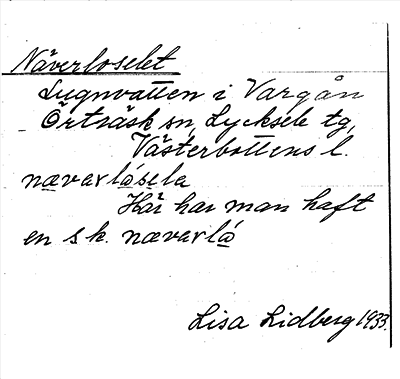 Näverloselet
Lugnvatten i Vargån
Örträsk sn, Lycksele tg,
Västerbottens l.
nævarlåsela
Här har man haft
en s.k. nævarlå
Lisa Lidberg 1933.